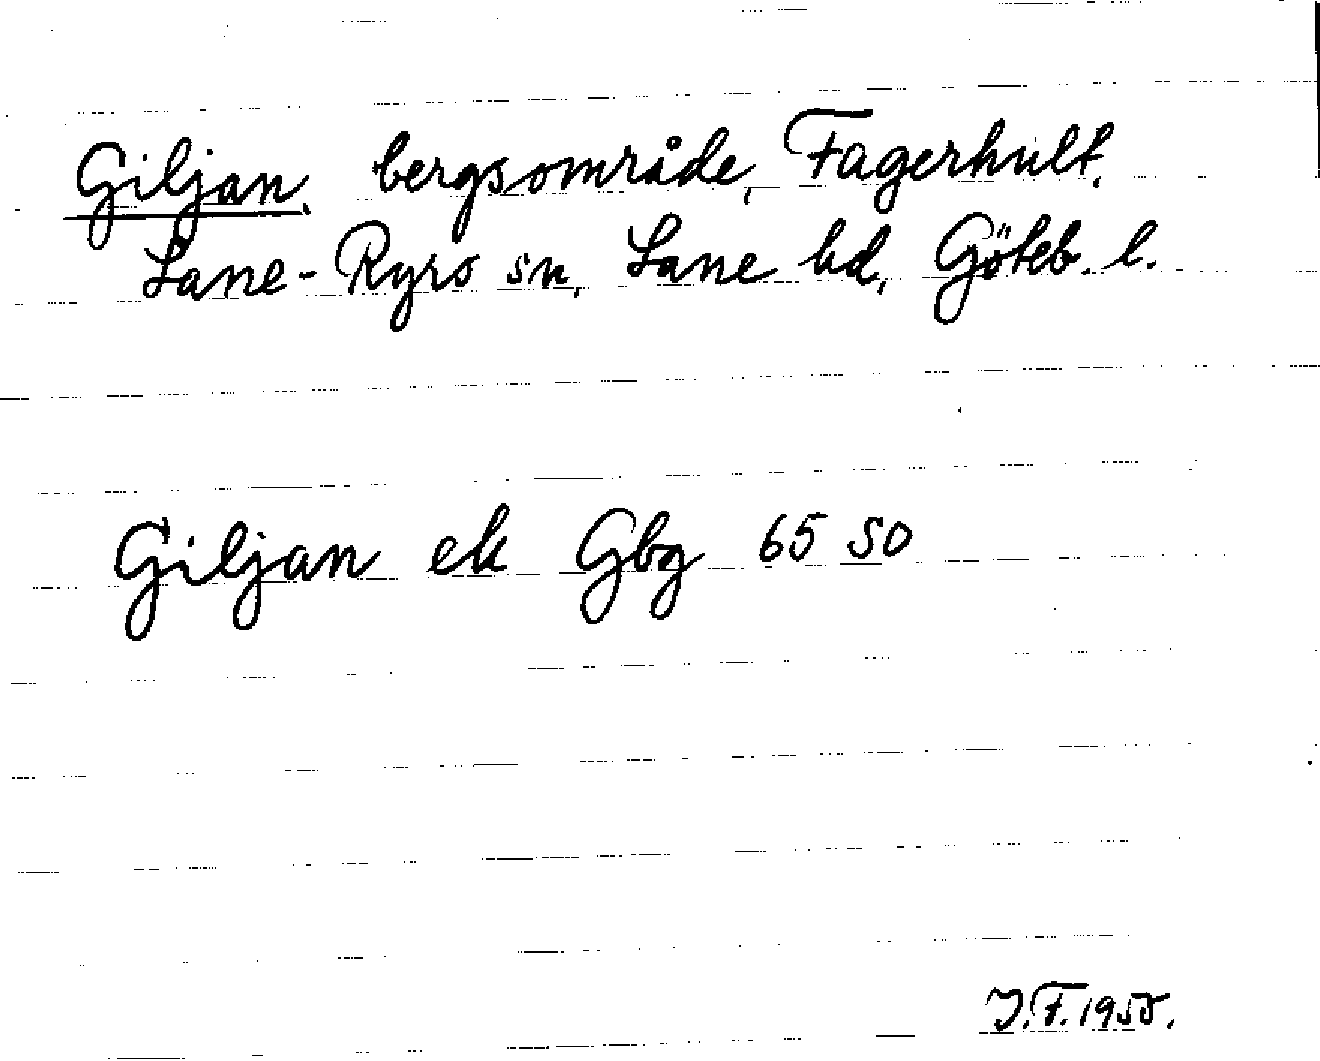 Giljan, bergsområde, Fagerhult,
Lane-Ryrs sn, Lane hd, Göteb. l.
Giljan ek Gbg 65 SO
J.F. 1955.